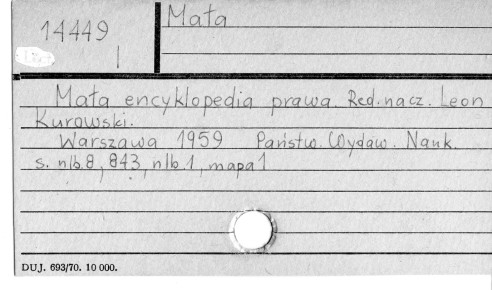 14449
I
Mała
Mała encyklopedia prawa. Red. nacz. Leon
Kurowski.
Warszawa 1959 Państw. Wydaw. Nauk.
s. nlb. 8, 843, nlb. 1, mapa 1
DUJ. 693/70. 10 000.